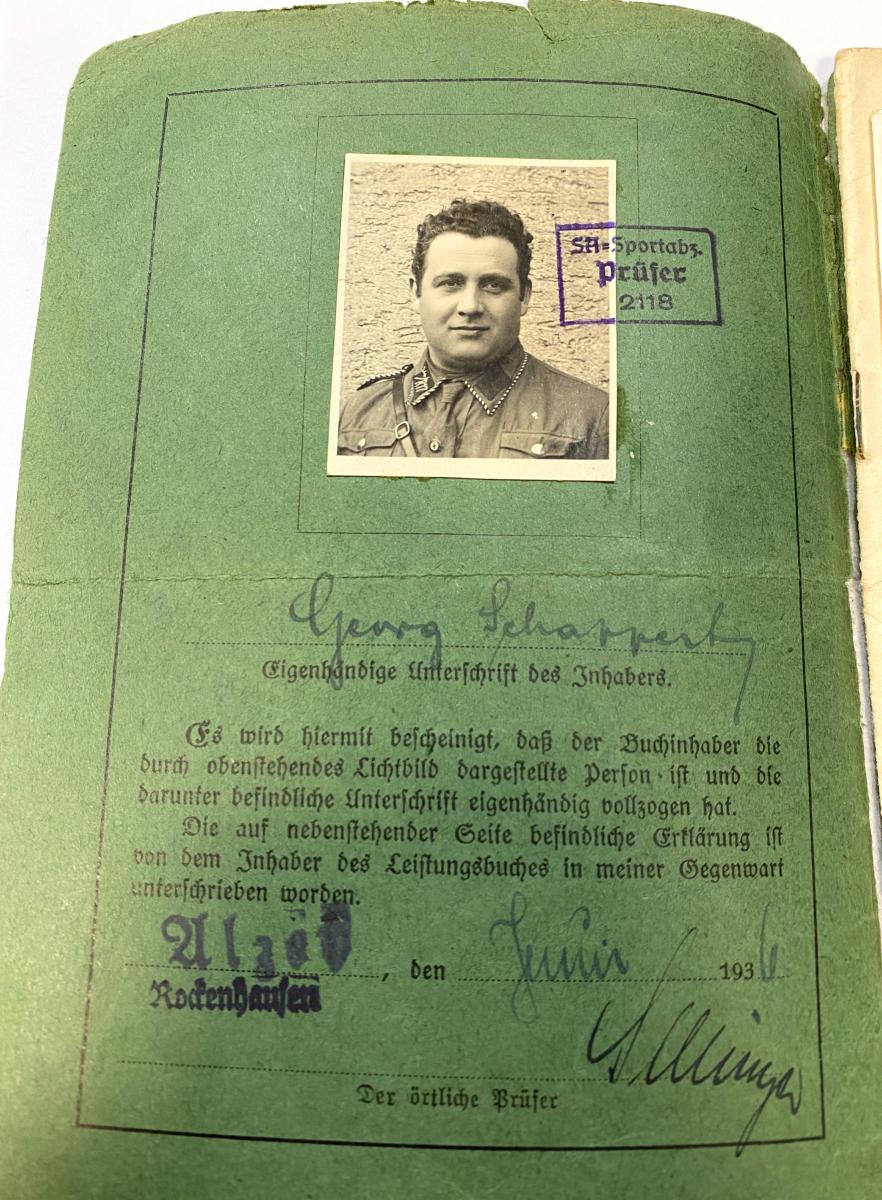 SA=Sportabz.
Prüfer
2118
Georg Schappert
Eigenhändige Unterschrift des Inhabers.
Es wird hiermit bescheinigt, daß der Buchinhaber die
durch obenstehendes Lichtbild dargestellte Person ist und die
darunter befindliche Unterschrift eigenhändig vollzogen hat.
Die auf nebenstehender Seite befindliche Erklärung ist
von dem Inhaber des Leistungsbuches in meiner Gegenwart
unterschrieben worden.
, den 1936
Rockenhausen
Der örtliche Prüfer